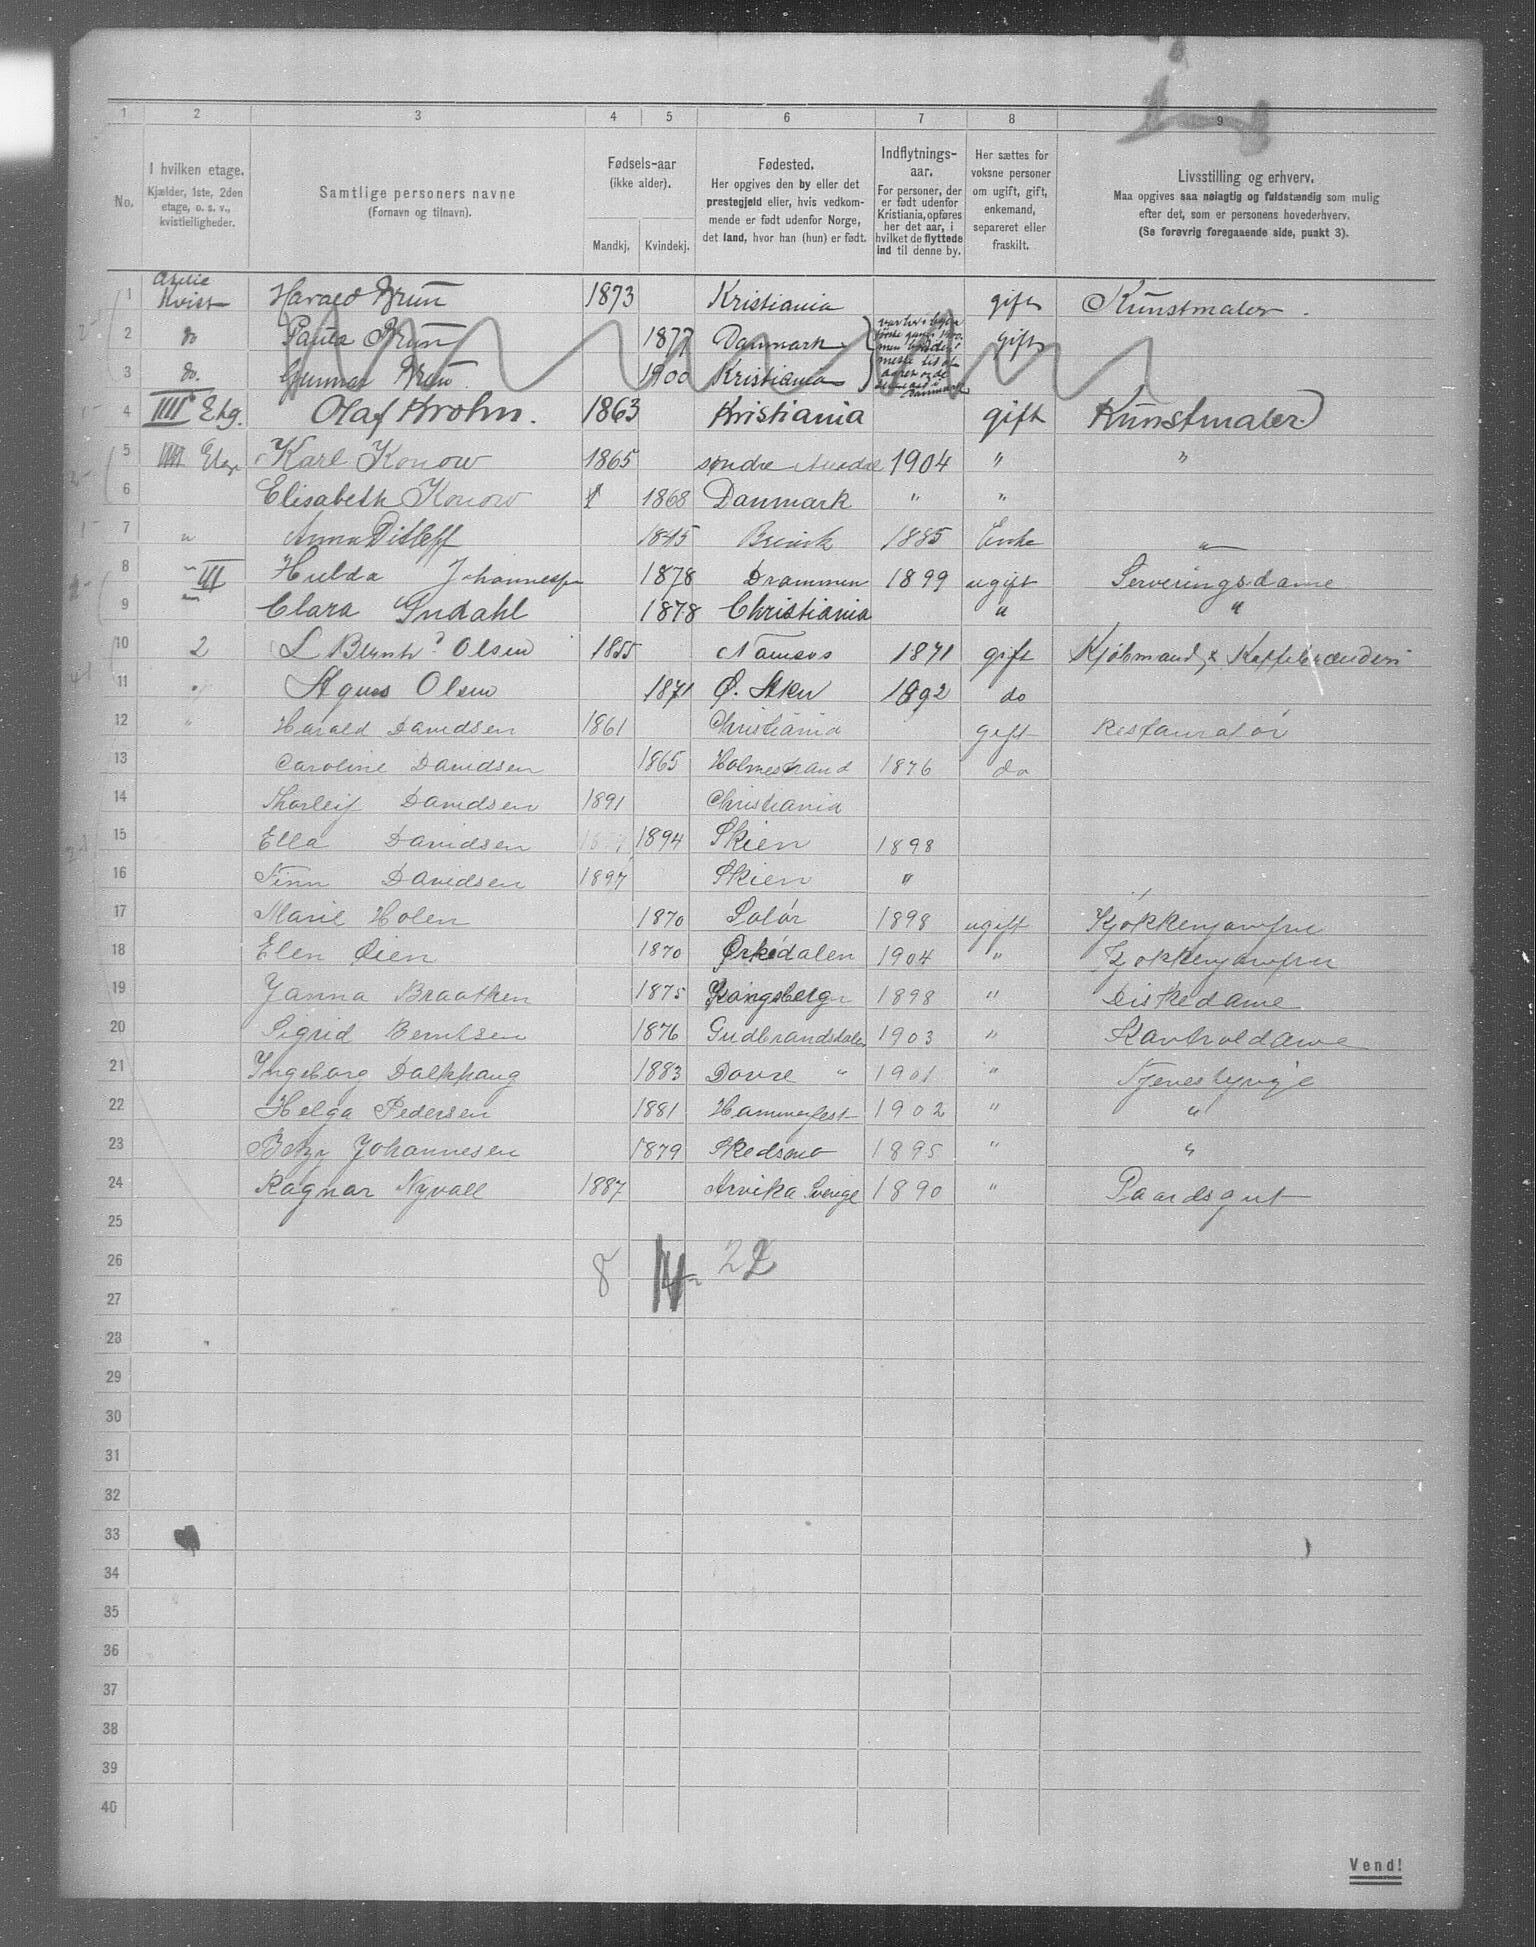 1 2 3 4 5 6 7 8 9
No.
I hvilken etage.
Kjælder, 1ste, 2den
etage, o. s. v.,
kvistleiligheder.
Samtlige personers navne
(Fornavn og tilnavn).
Fødsels-aar
(ikke alder).
Mandkj. Kvindekj.
Fødested.
Her opgives den by eller det
prestegjeld eller, hvis vedkom-
mende er født udenfor Norge,
det land, hvor han (hun) er født.
Indflytnings-
aar.
For personer, der
er født udenfor
Kristiania, opføres
her det aar, i
hvilket de flyttede
ind til denne by.
Her sættes for
voksne personer
om ugift, gift,
enkemand,
separeret eller
fraskilt.
Livsstilling og erhverv.
Maa opgives saa nøiagtig og fuldstændig som mulig
efter det, som er personens hovederhverv.
(Se forøvrig foregaaende side, punkt 3).
1 Kvist Harald Brun 1873 Kristiania gift Kunstmaler.
2 do Paula Brun 1877 Danmark gift
3 do. Gunnar Brun 1900 Kristiania
4 IIII Etg. Olaf Krohn. 1863 Kristiania gift Kunstmaler
5 IIII Etg. Karl Konow 1865 søndre 1904 " "
6 Elisabeth Konow 1868 Danmark " "
7 " Anna Ditleff 1845 1885 Enke "
8 III Hulda Johannesen 1878 Drammen 1899 ugift Serveringsdame
9 " Clara Indahl 1878 Christiania " "
10 2 L Bernh. Olsen 1855 Namsos 1871 gift Kjøbmand & Kaffebrænderi
11 " Agnes Olsen 1871 Ø. Aker 1892 do
12 " Harald Davidsen 1861 Christiania gift Restauratør
13 Caroline Davidsen 1865 Holmestrand 1876 do
14 Thorleif Davidsen 1891 Christiania
15 Ella Davidsen 1894 Skien 1898
16 Finn Davidsen 1897 Skien "
17 Marie Holen 1870 Solør 1898 ugift Kjøkkenjomfru
18 Elen Øien 1870 Ørkedalen 1904 " Kjøkkenjomfru
19 Janna Braathen 1875 Kongsberg 1898 " Diskedame
20 Sigrid Berntsen 1876 Gudbrandsdalen 1903 " Kontroldame
21 Ingeborg Dalkhaug 1883 Dovre " 1901 " Tjenestepige
22 Helga Pedersen 1881 Hammerfest 1902 " "
23 Betzy Johannesen 1879 Skedsmo 1895 " "
24 Ragnar Nyvall 1887 Arvika Sverige 1890 " Gaardsgut
25
26 8 14 22
27
28
29
30
31
32
33
34
35
36
37
38
39
40
Vend!